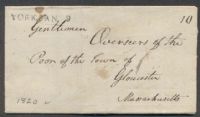 YORK ME 9
10
Gentlemen
Overseers of the
Poor of the Town of
Gloucester
Massachusetts
1820